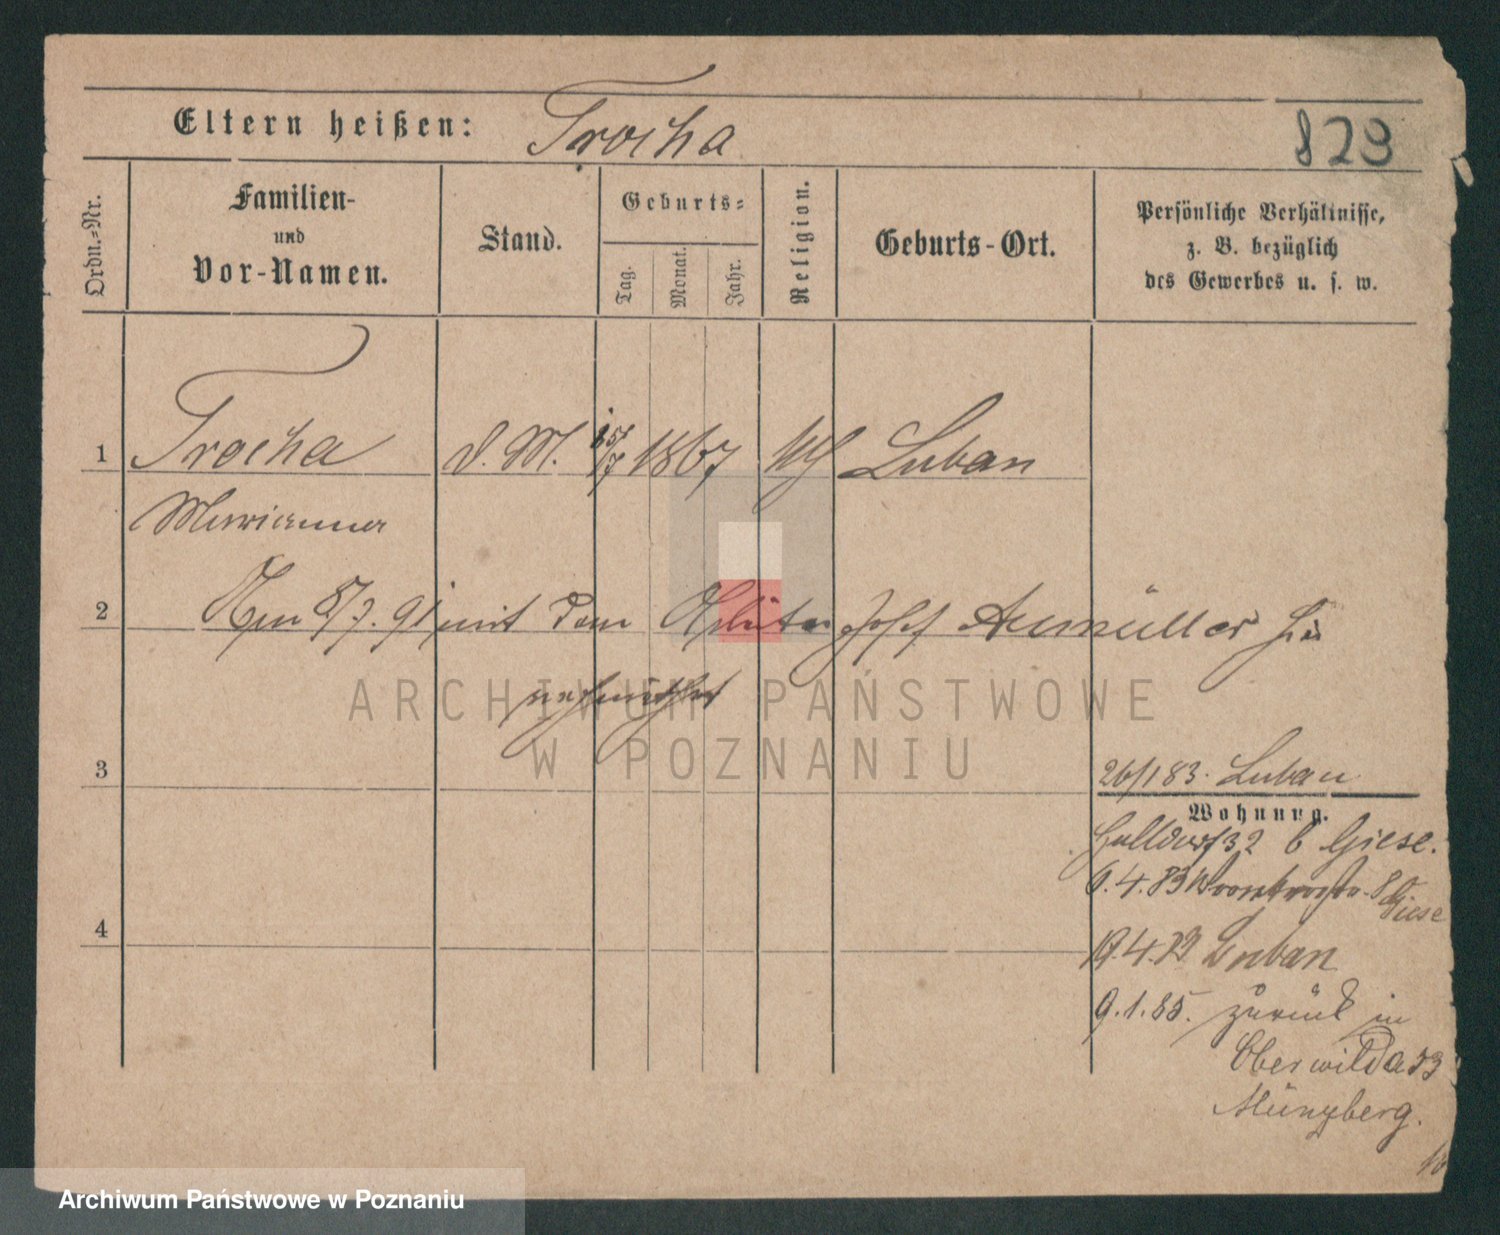 Eltern heißen: Trocha
823
Ordn.=Nr.
Familien-
und
Vor-Namen.
Stand.
Geburts=
Tag.
Monat.
Jahr.
Religion.
Geburts-Ort.
Persönliche Verhältnisse,
z. B. bezüglich
des Gewerbes u. s. w.
1 Trocha d. M. 15/7 1867 Luban
Marianna
2 Am 8/7. 91 mit dem Josef
ARCHIWUM PAŃSTWOWE
W POZNANIU
3
26/1 83. Luban
Wohnung.
Halldorf 32 b Giese.
6.4.83 Giese
4
19.4.83 Luban
9.1.85. zurück in
Oberwilda 53
Münzberg.
Archiwum Państwowe w Poznaniu